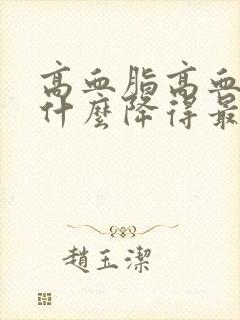 高血脂高血
什麼降得最
趙玉潔